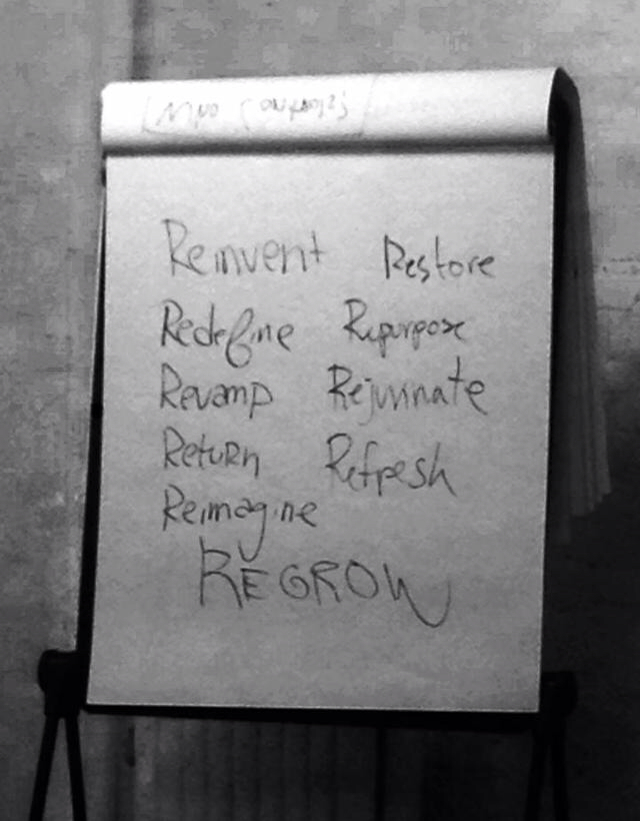 Reinvent Restore
Redefine Repurpose
Revamp Rejuvinate
Return Refresh
Reimagine
REGROW